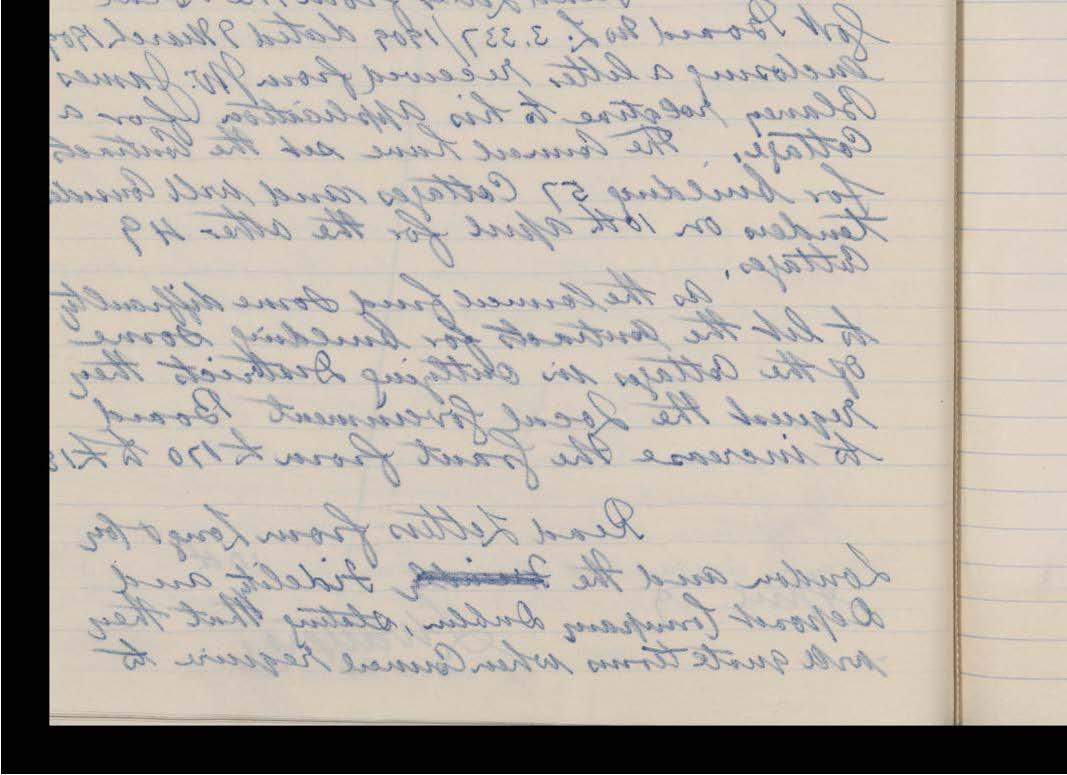 Govt Board No L. 3.337/1909 dated 9 March 1909
enclosing a letter received from Mr. James
Blaney relative to his application for a
Cottage. The Council have let the Contracts
for building 57 Cottages and will Consider
tenders on 10th April for the other 49
Cottages.
As the Council find some difficulty
to let the Contracts for building some
of the Cottages in outlying Districts they
request the Local Government Board
to increase the grant from £170 to £18
Read Letters from
London and the Fidelity and
Deposit Company Dublin, stating that they
will quote terms when Council require to